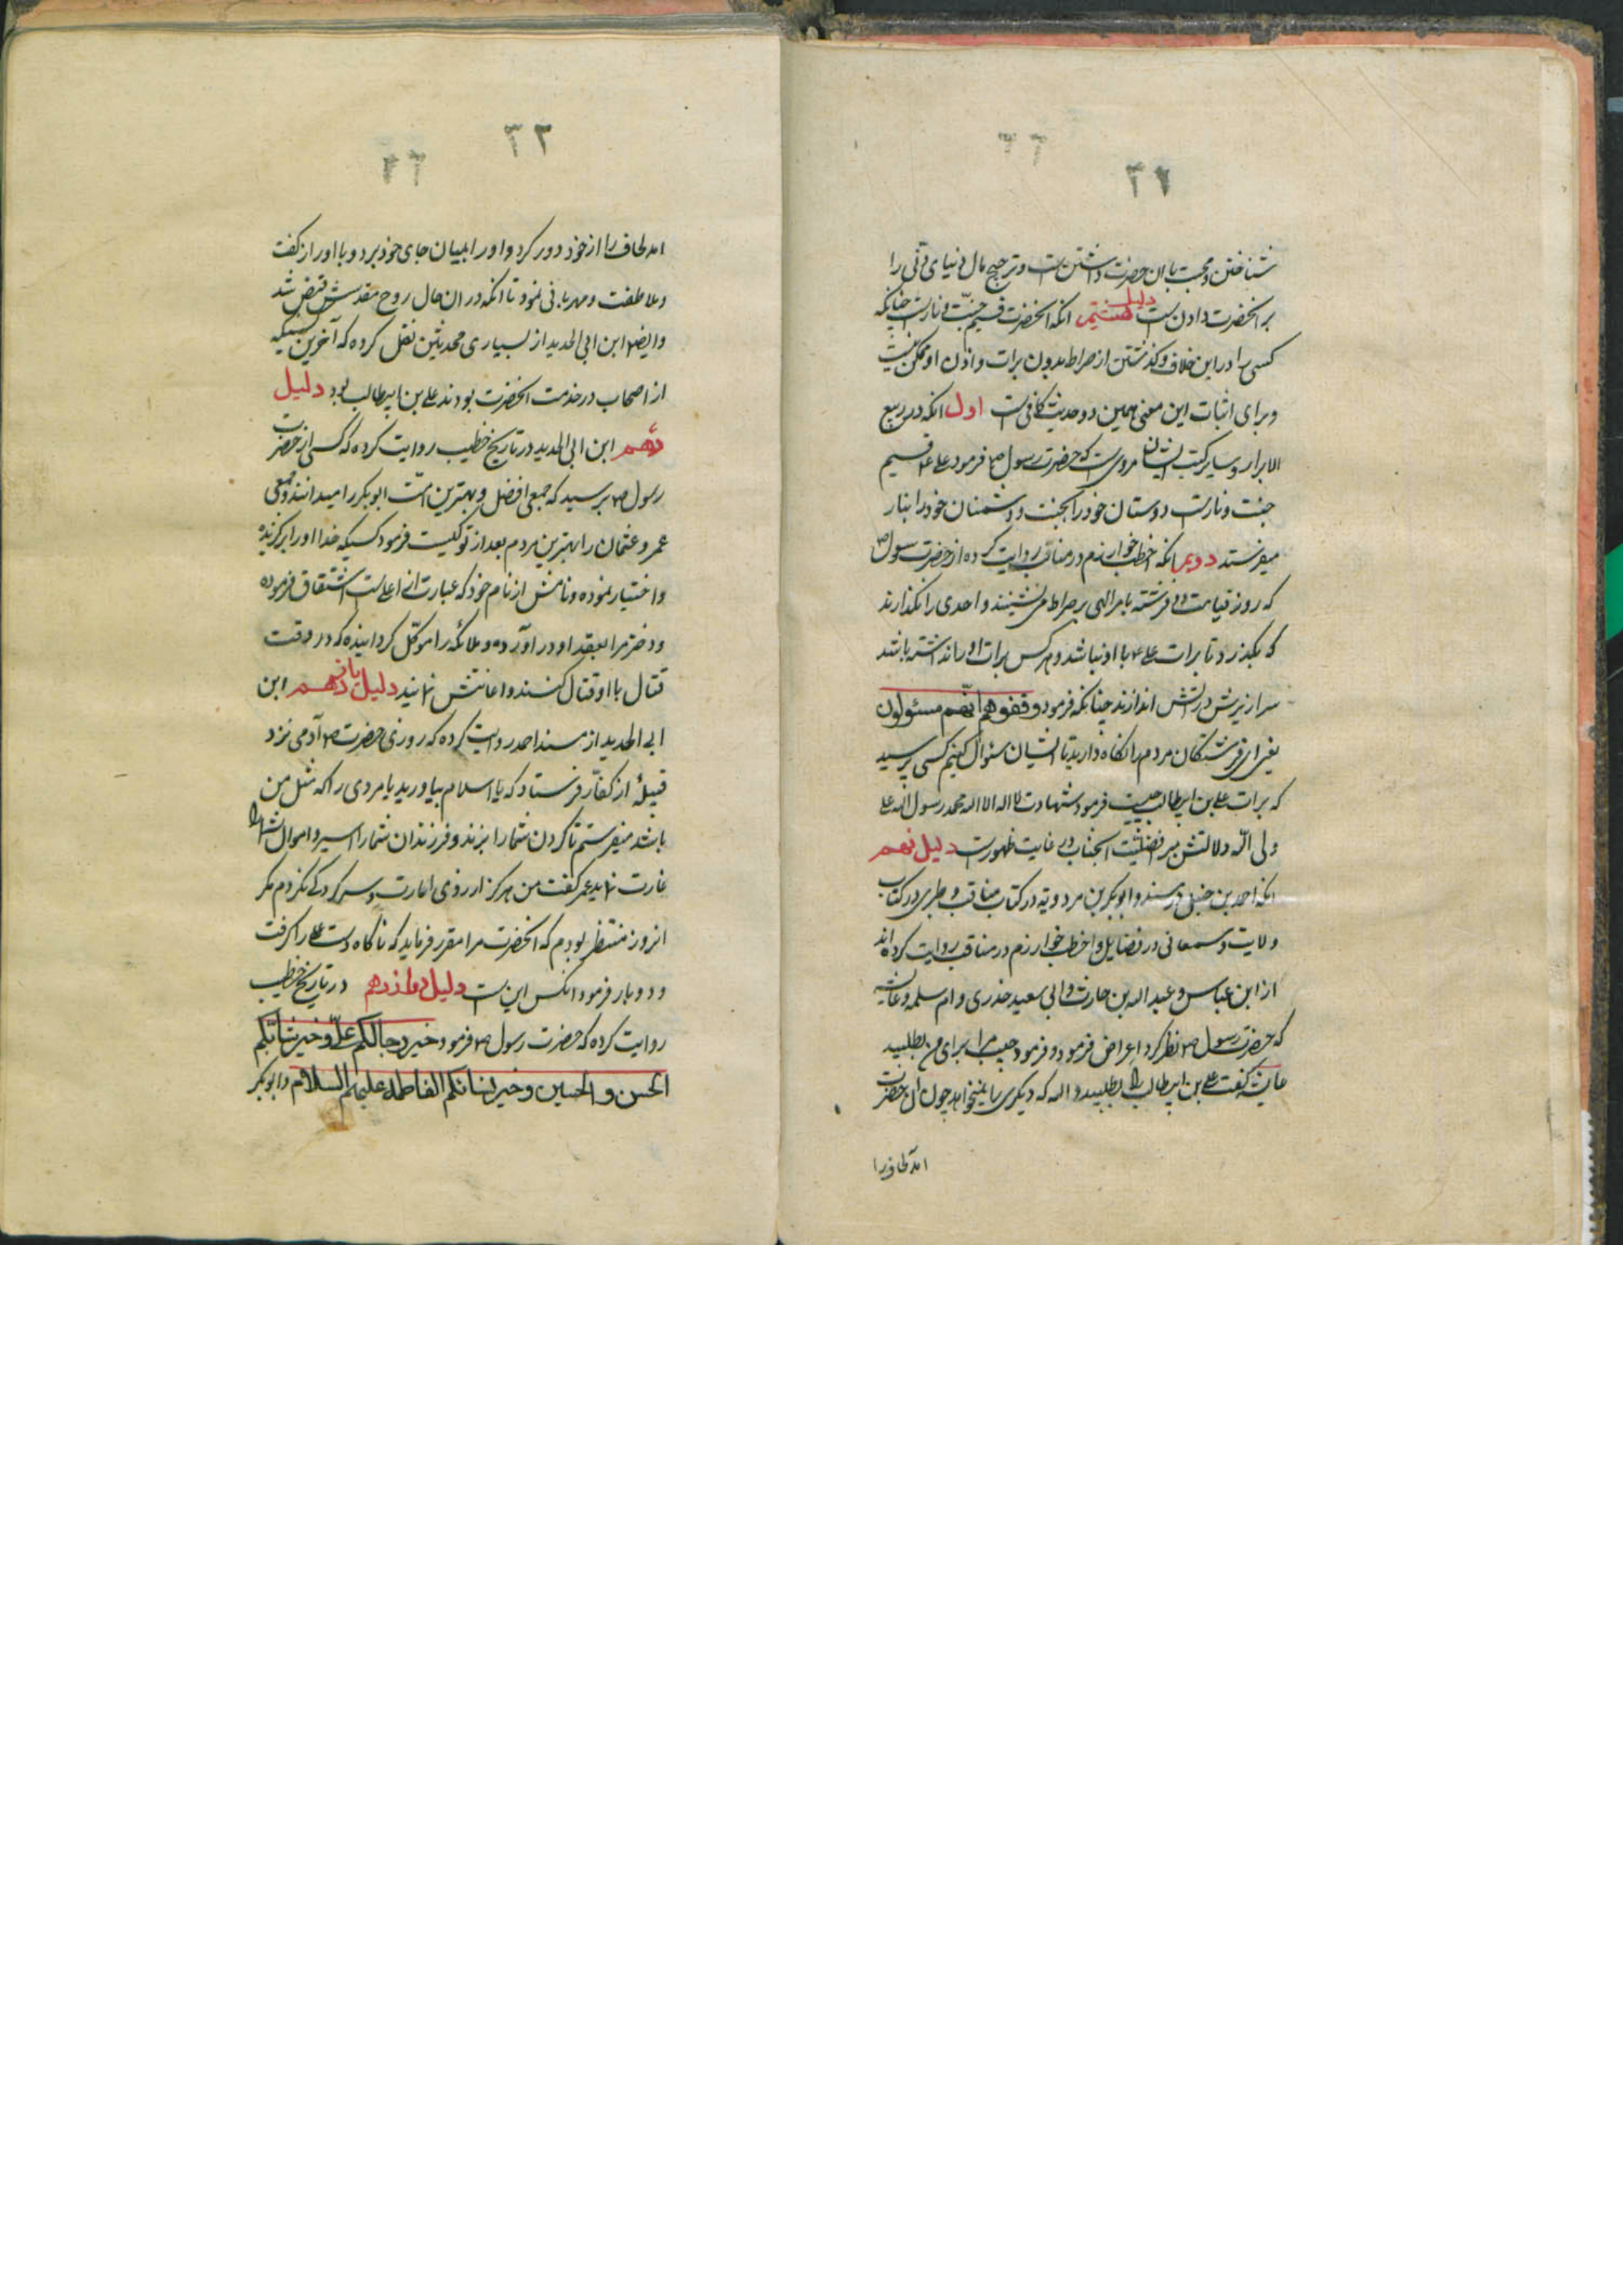 ۳۲
شناختن و محبت بان حضرت داشتن است و ترجیح مال دنیای دنی را
بر انحضرت دادن است دلیل هشتم انکه انحضرت قسیم جنت و نارست چنانکه
کسی را در این خلاف و کذشتن از صراط بدون برات و اذن او ممکن نیست
و برای اثبات این معنی همین دو حدیث کافی است اول انکه در ربیع
الابرار و سایر کتب ایشان مرویست که حضرت رسول ص فرمود علی ع قسیم
جنت و نارست دوستان خود را بجنت و دشمنان خود را بنار
میفرستد دویم انکه اخطب خوارزم در مناقب روایت کرده از حضرت رسول ص
که روز قیامت دو فرشته بامر الهی بر صراط می نشینند و احدی را نکذارند
که بکذرد تا برات علی ع با او نباشد و هر کس برات او را نداشته باشد
سرازیرش در اتش اندازند چنانکه فرمود وقفوهم انّهم مسئولون
یعنی ای فرشتکان مردم را نکاه دارید تا از ایشان سئوال کنیم کسی پرسید
که برات علی بن ابیطالب چیست فرمود شهادت لا اله الا الله محمد رسول الله علی
ولی الله دلالتش بر افضلیت انجناب در غایت ظهورست دلیل نهم
انکه احمد بن حنبل در مسند و ابوبکر بن مردویه در کتاب مناقب و طبری در کتاب
ولایت و سمعانی در فضایل و اخطب خوارزم در مناقب روایت کرده اند
از ابن عباس و عبد الله بن حارث و ابی سعید خدری و ام سلمه و عایشه
که حضرت رسول ص نظر کرد اعراض فرمود و فرمود حبیب مرا برای من بطلبید
عایشه کفت علی بن ابیطالب را بطلبید والله که دیکری را نمیخواهد چون ان حضرت
امد لحاف را
۳۳
امد لحاف را از خود دور کرد و او را بمیان جای خود برد و با او راز کفت
و ملاطفت و مهربانی نمود تا انکه در ان حال روح مقدسش قبض شد
و ایضا ابن ابی الحدید از بسیاری محدثین نقل کرده که آخرین کسیکه
از اصحاب در خدمت انحضرت بودند علی بن ابیطالب بود دلیل
دهم ابن ابی الحدید در تاریخ خطیب روایت کرده که کسی از حضرت
رسول ص پرسید که جمعی افضل و بهترین امّت ابوبکر را میدانند و جمعی
عمر و عثمان را بهترین مردم بعد از تو کیست فرمود کسیکه خدا او را برکزیده
و اختیار نموده و نامش از نام خود که عبارت از اعلی است اشتقاق فرموده
و دختر مرا بعقد او در آورده و ملائکه را موکّل کردانیده که در وقت
قتال با او قتال کنند و اعانتش نمایند دلیل یازدهم ابن
ابی الحدید از مسند احمد روایت کرده که روزی حضرت ص آدمی نزد
قبیلهٔ از کفّار فرستاد که یا اسلام بیاورید یا مردی را که مثل من
باشد میفرستم تا کردن شما را بزند و فرزندان شما را اسیر و اموال شما را
غارت نماید عمر کفت من هرکز ارزوی امارت و سرکردکی نکردم مکر
انروز منتظر بودم که انحضرت مرا مقرر فرماید که ناکاه دست علی را کرفت
و دو بار فرمود انکس این است دلیل دوازدهم در تاریخ خطیب
روایت کرده که حضرت رسول ص فرمود خیر رجالکم علیّ و خیر شبابکم
الحسن و الحسین و خیر نسائکم الفاطمه علیهم السلام و ابوبکر